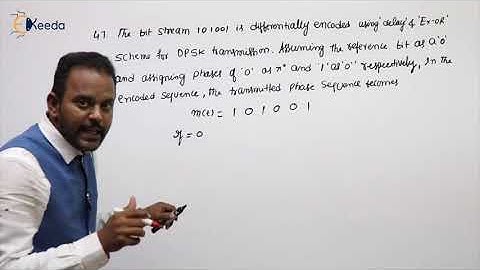 EKeeda
47. The bit stream 101001 is differentially encoded using 'delay' & 'Ex-OR'
scheme for DPSK transmission. Assuming the reference bit as a '0'
and assigning phases of '0' as π° and '1' as '0°' respectively, in the
encoded sequence, the transmitted phase sequence becomes
m(t) = 1 0 1 0 0 1
= 0